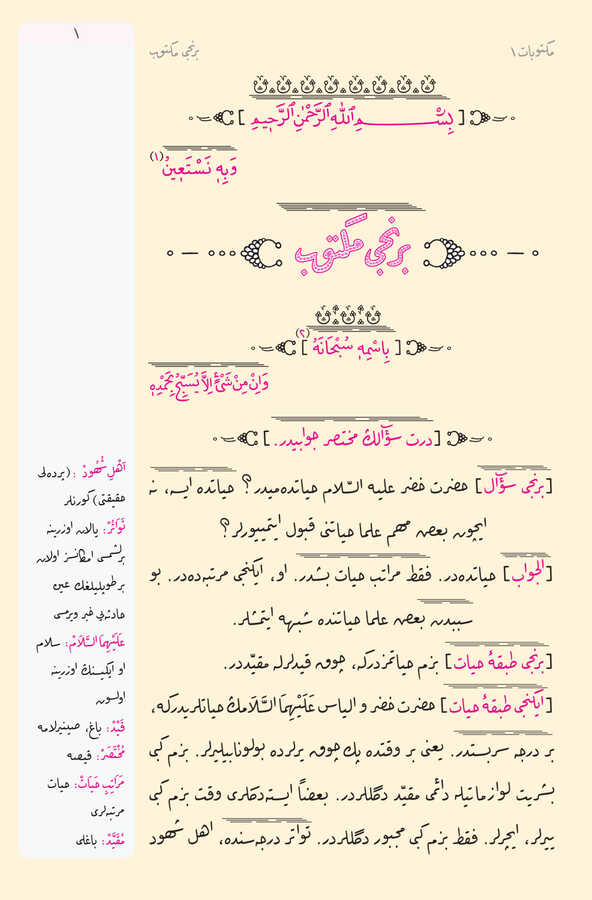 مكتوبات ١
برنجى مكتوب
١
[ بِسْمِ اللّٰهِ الرَّحْمٰنِ الرَّحِيمِ ]
وَبِهٖ نَسْتَعٖينُ (١)
برنجى مكتوب
[ بِاسْمِهٖ سُبْحَانَهُ (٢) ]
وَاِنْ مِنْ شَيْءٍ اِلَّا يُسَبِّحُ بِحَمْدِهٖ
[ درت سؤالڭ مختصر جوابيدر. ]
[برنجى سؤال] حضرت خضر عليه السّلام حياتده‌ميدر؟ حياتده ايسه، نه
ايچون بعض مهم علما حياتنى قبول ايتمييورلر؟
[الجواب] حياتده‌در. فقط مراتب حيات بشدر. او، ايكنجى مرتبه‌ده‌در. بو
سببدن بعض علما حياتنده شبهه ايتمشلر.
[برنجى طبقۀ حيات] بزم حياتمزدركه، چوق قيدلرله مقيّددر.
[ايكنجى طبقۀ حيات] حضرت خضر و الياس عَلَيْهِمَا السَّلَامڭ حياتلريدركه،
بر درجه سربستدر. يعنى بر وقتده پك چوق يرلرده بولونابيليرلر. بزم كبى
بشريت لوازماتيله دائمى مقيّد دگللردر. بعضاً ايسته‌دكلرى وقت بزم كبى
ييرلر، ايچرلر. فقط بزم كبى مجبور دگللردر. تواتر درجه‌سنده، اهل شهود
اَهْلِ شُهُودْ : (پرده‌لى
حقيقتى) كورنلر
تَوَاتُرْ: يالان اوزرينه
برلشمسى امكانسز اولان
بر طوپليلغڭ عين
حادثه‌يى خبر ويرمسى
عَلَيْهِمَا السَّلَامْ: سلام
او ايكيسنڭ اوزرينه
اولسون
قَيْدْ: باغ، صينيرلامه
مُخْتَصَرْ: قيصه
مَرَاتِبِ حَيَاتْ: حيات
مرتبه‌لرى
مُقَيَّدْ: باغلى